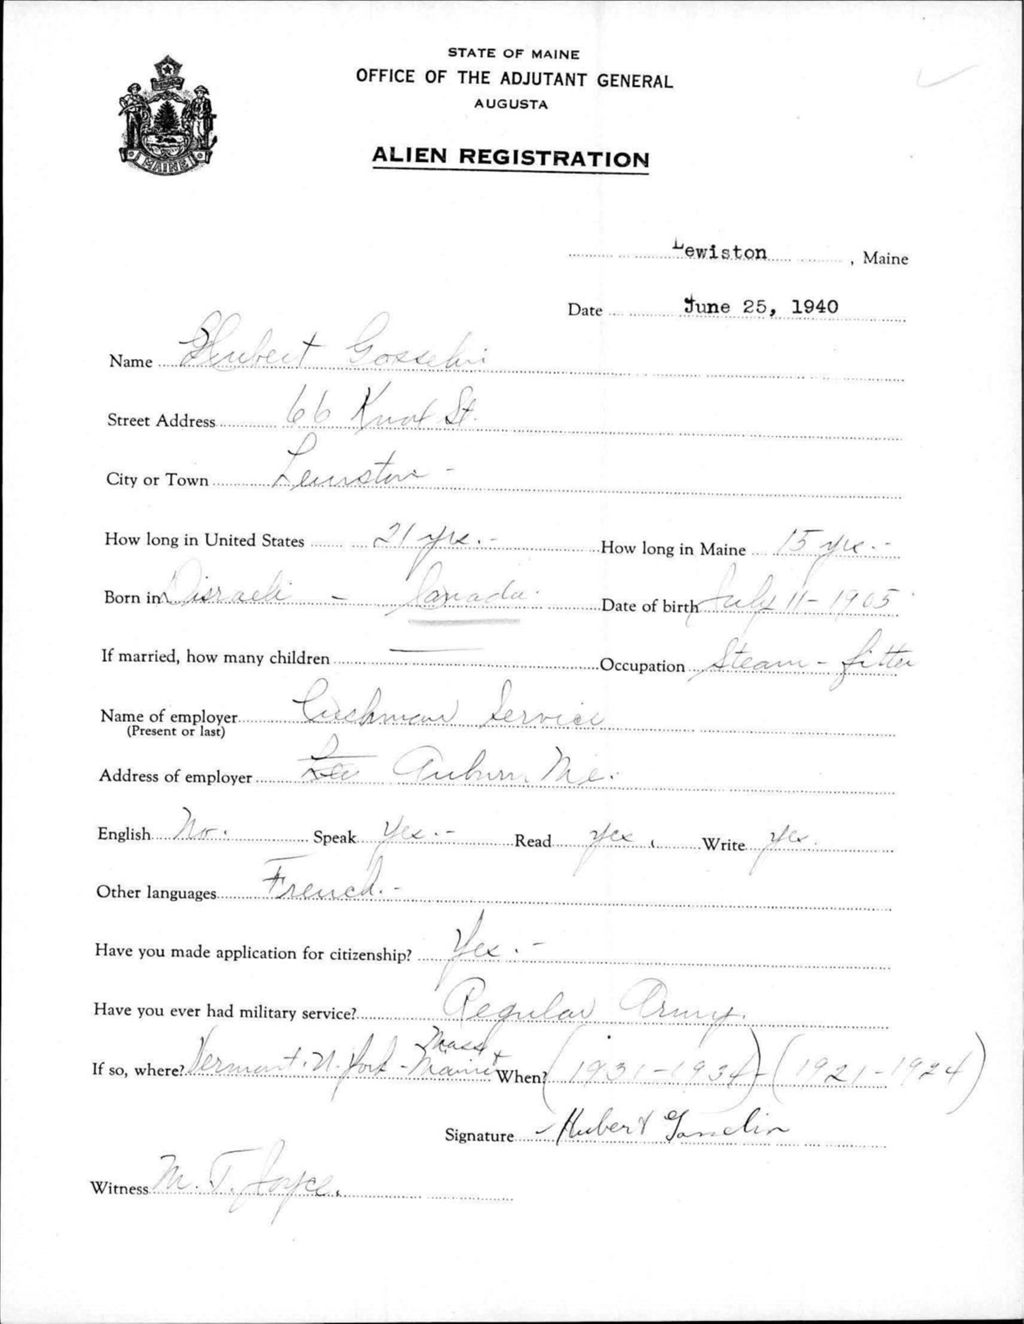 STATE OF MAINE
OFFICE OF THE ADJUTANT GENERAL
AUGUSTA
ALIEN REGISTRATION
MAINE
Lewiston, Maine
Date June 25, 1940
Name Hubert Gosselin
Street Address 66 Knox St.
City or Town Lewiston -
How long in United States 21 yrs. - How long in Maine 15 yrs. -
Born in Disraeli - Canada. Date of birth July 11 - 1905
If married, how many children — Occupation Steam - fitter
Name of employer Cushman Service
(Present or last)
Address of employer Auburn, Me.
English No. Speak Yes. - Read yes. Write yes.
Other languages French. -
Have you made application for citizenship? Yes. -
Have you ever had military service? Regular Army.
If so, where? Vermont. N. York - Mass + Maine When? (1931-1934) - (1921-1924)
Signature Hubert Gosselin
Witness M. T. Joyce.